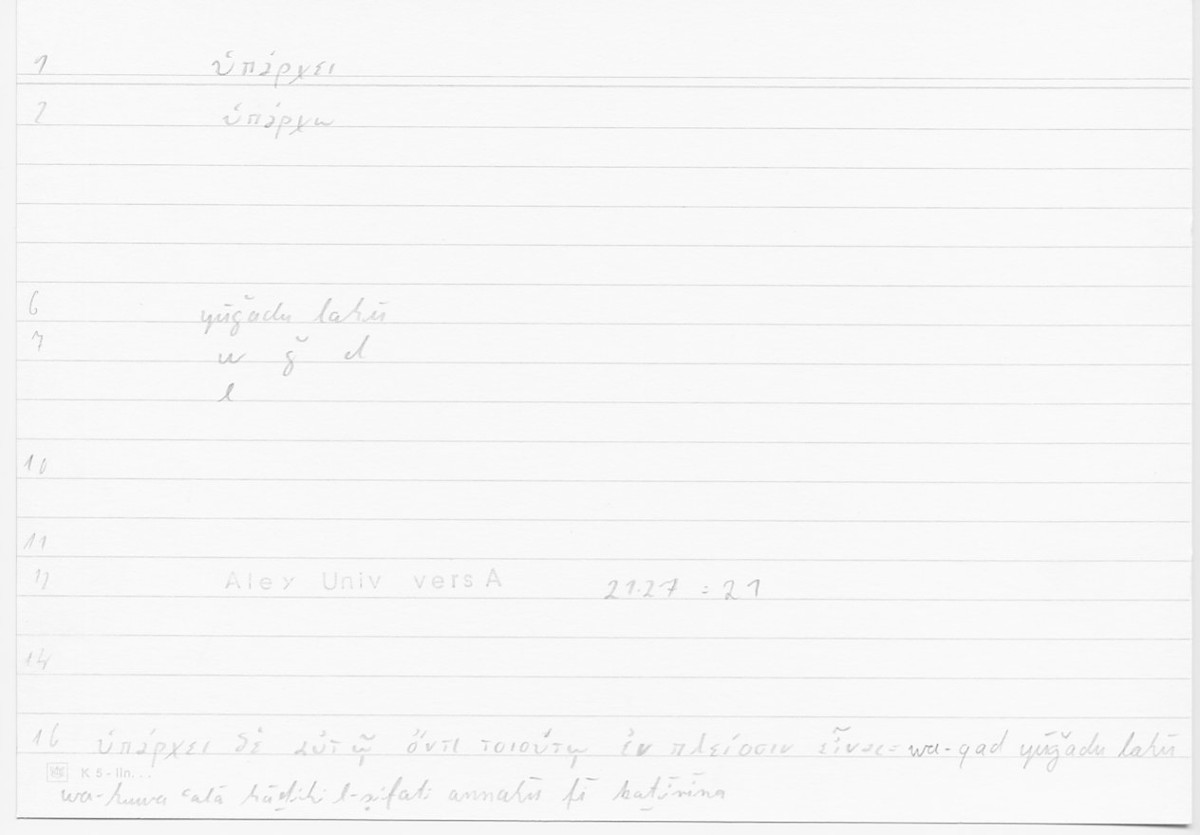 1 ὑπάρχει
2 ὑπάρχω
6 yūǧadu lahū
7 w ǧ d
l
10
11
12 Alex Univ vers A 21.27 = 21
14
16 ὑπάρχει δὲ αὐτῷ ὄντι τοιούτῳ ἐν πλείοσιν εἶναι = wa-qad yūǧadu lahū
K 5 - lin...
wa-huwa ʿalā hāḏihi l-ṣifati annahū fī kaṯīrīna